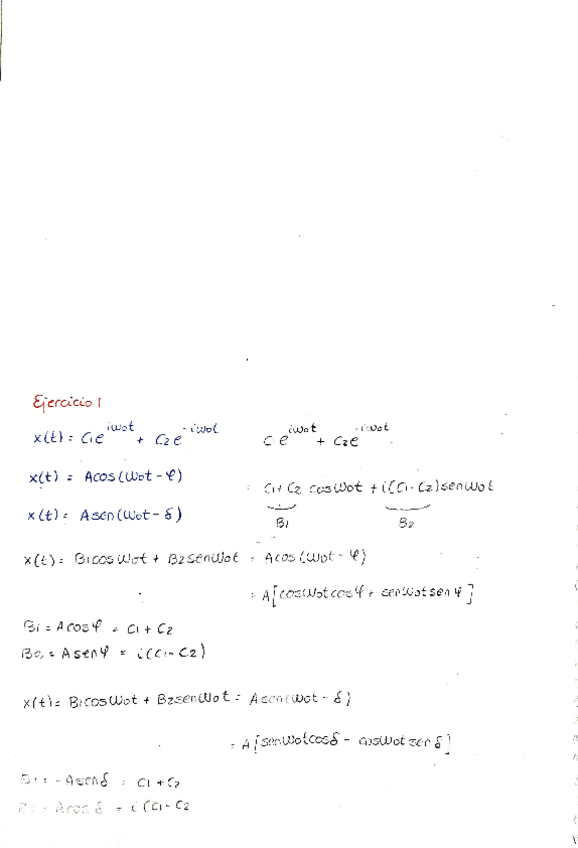 Ejercicio 1
x(t) = C1e^iwot + C2e^-iwot
C1e^iwot + C2e^-iwot
x(t) = Acos(Wot - φ)
= C1+C2 cosWot + i(C1-C2)senWot
x(t) = Asen(Wot - δ)
B1 B2
x(t) = B1cosWot + B2senWot = Acos(Wot - φ)
= A[cosWotcosφ + senWotsenφ]
B1 = Acosφ = C1 + C2
B2 = Asenφ = i(C1-C2)
x(t) = B1cosWot + B2senWot = Asen(Wot - δ)
= A[senWotcosδ - cosWotsenδ]
B1 = -Asenδ = C1+C2
= Acosδ = i(C1-C2